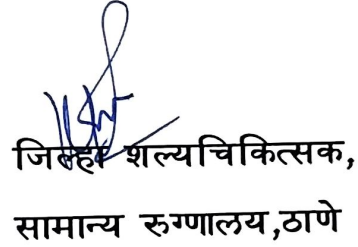 जिल्हा शल्यचिकित्सक,
सामान्य रुग्णालय,ठाणे